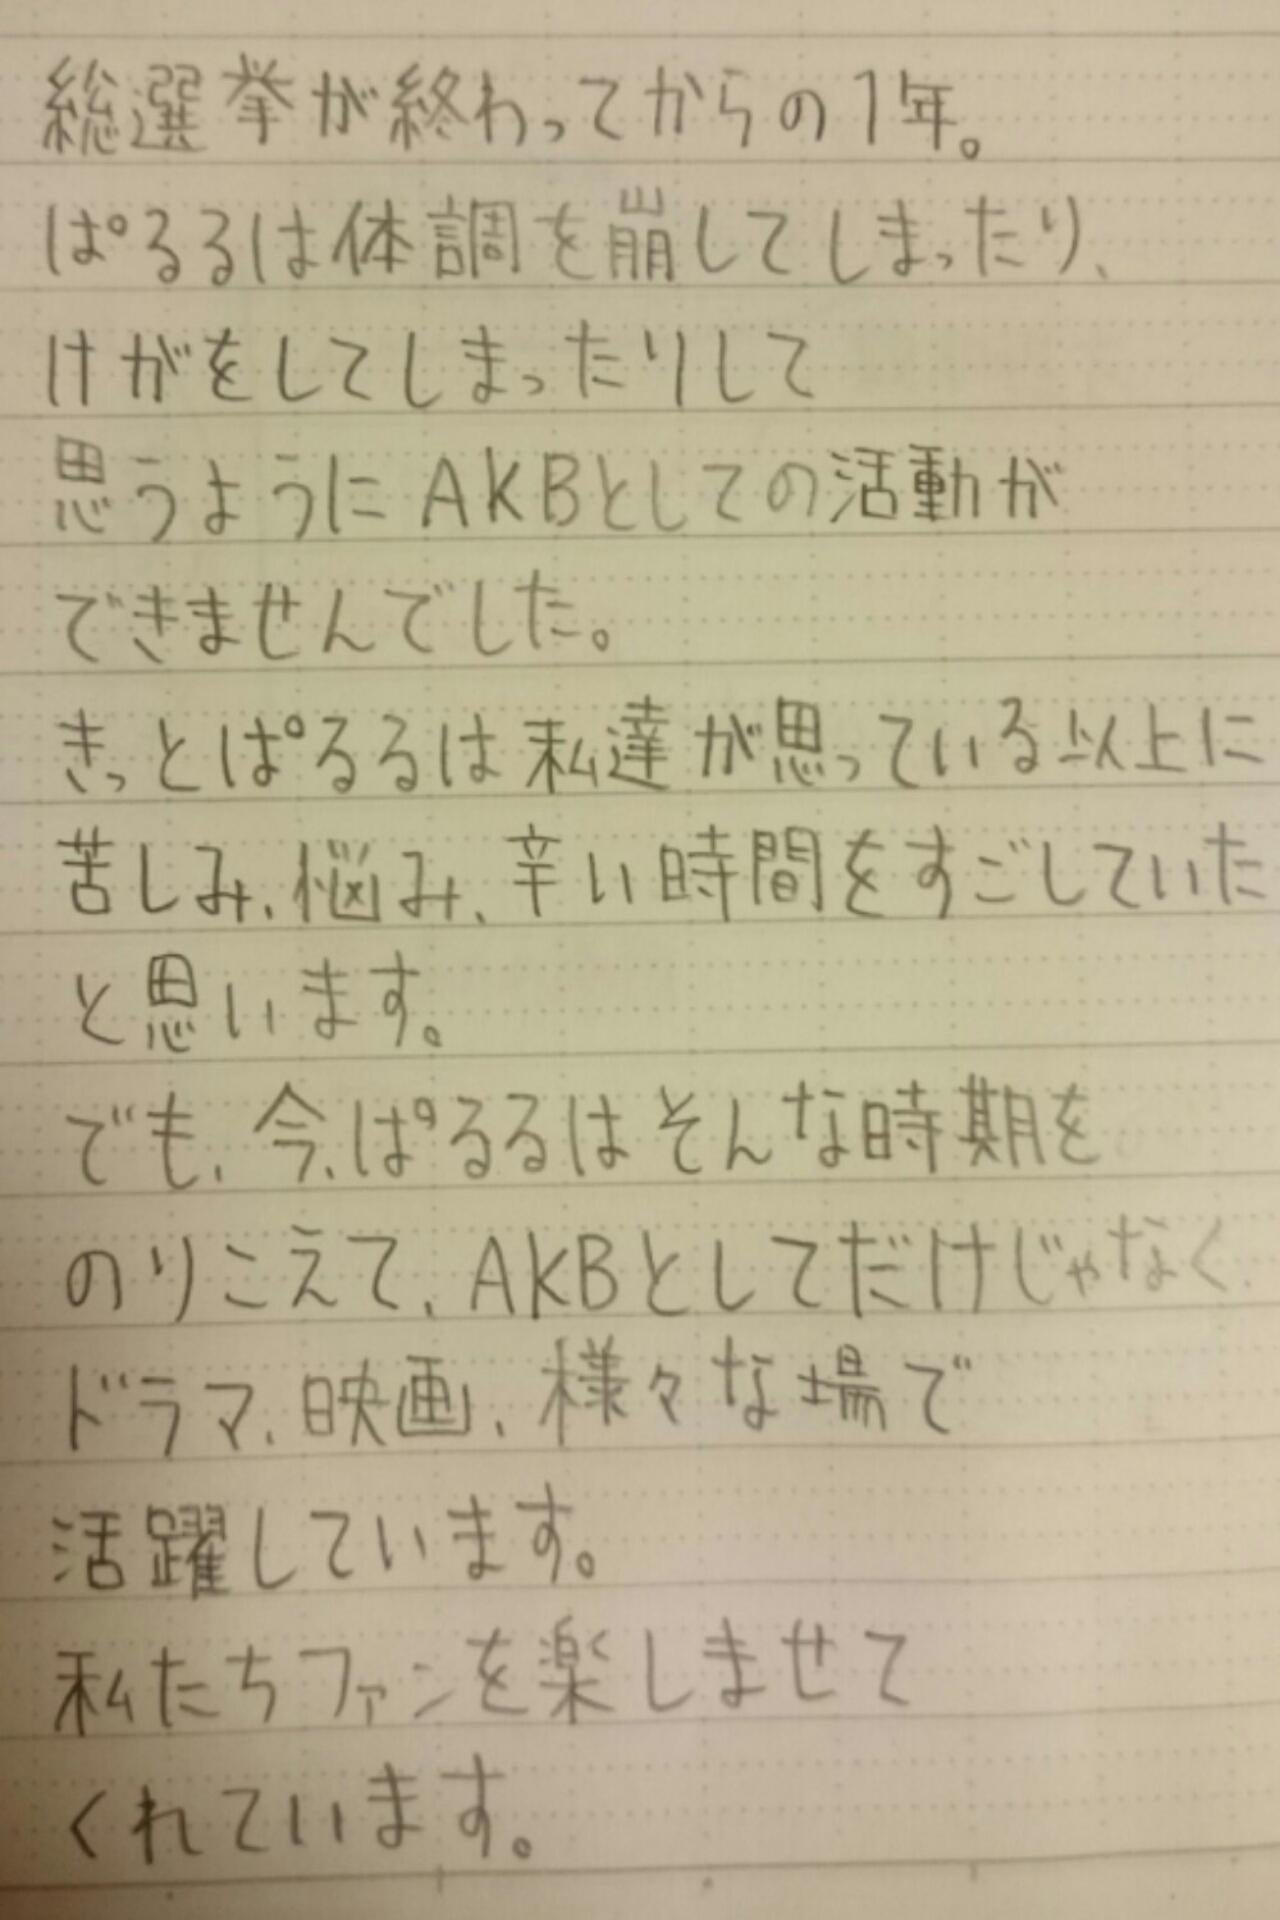 総選挙が終わってからの1年。
ぱるるは体調を崩してしまったり、
けがをしてしまったりして
思うようにAKBとしての活動が
できませんでした。
きっとぱるるは私達が思っている以上に
苦しみ、悩み、辛い時間をすごしていた
と思います。
でも、今、ぱるるはそんな時期を
のりこえて、AKBとしてだけじゃなく
ドラマ、映画、様々な場で
活躍しています。
私たちファンを楽しませて
くれています。